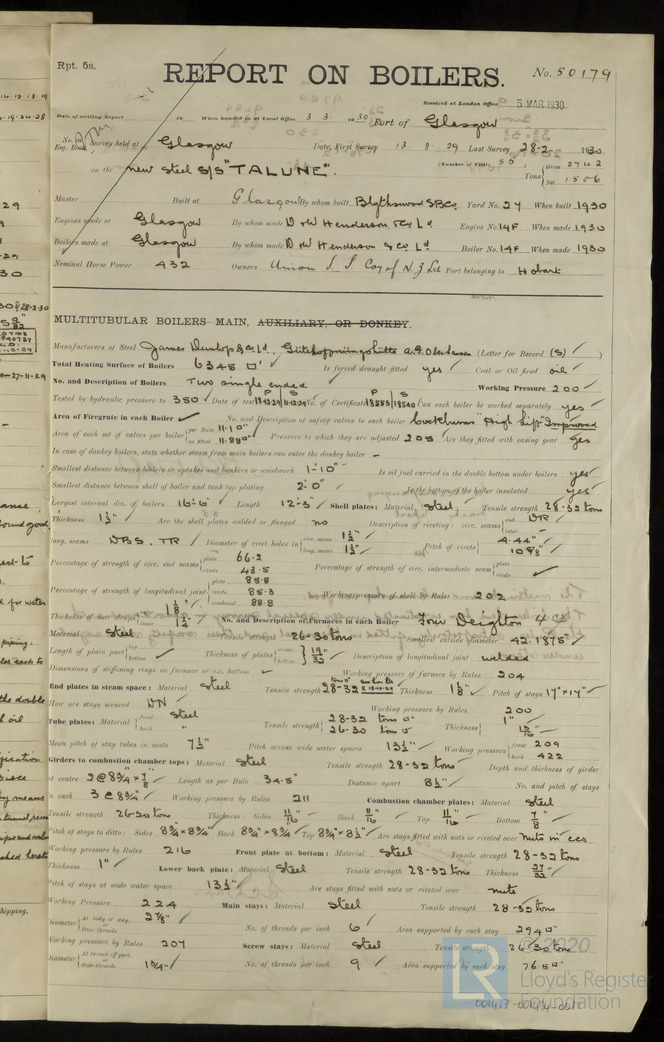 Rpt. 5a.
REPORT ON BOILERS.
No. 50179
Received at London Office 5 MAR 1930
Date of writing Report 19 When handed in at Local Office 3 3 1930 Port of Glasgow
No. in Reg. Book. Survey held at Glasgow Date, First Survey 13. 8. 29 Last Survey 28-2- 1930
on the new Steel S/S "TALUNE". (Number of Visits 55) Tons {Gross 2742 Net 1506
Master Built at Glasgow By whom built Blythswood SBCo. Yard No. 27 When built 1930
Engines made at Glasgow By whom made D & W Henderson & Co Ld Engine No. 14F When made 1930
Boilers made at Glasgow By whom made D & W Henderson & Co. Ld Boiler No. 14F When made 1930
Nominal Horse Power 432 Owners Union S. S Coy of N. Z Ld Port belonging to Hobart
MULTITUBULAR BOILERS MAIN, AUXILIARY, OR DONKEY.
Manufacturers of Steel James Dunlop & Co Ld., Gutehoffnungshütte A.G. Oberhausen (Letter for Record (S) )
Total Heating Surface of Boilers 6345 □' Is forced draught fitted yes Coal or Oil fired oil
No. and Description of Boilers Two single ended Working Pressure 200
Tested by hydraulic pressure to 350 Date of test P 19.12.29 S 11.12.29 No. of Certificate P 18553 S 18540 Can each boiler be worked separately yes
Area of Firegrate in each Boiler No. and Description of safety valves to each boiler Cockburns "High Lift" Improved
Area of each set of valves per boiler {per Rule 11.10□" as fitted 11.88□" Pressure to which they are adjusted 205 Are they fitted with easing gear yes
In case of donkey boilers, state whether steam from main boilers can enter the donkey boiler -
Smallest distance between boilers or uptakes and bunkers or woodwork 1'-10" Is oil fuel carried in the double bottom under boilers yes
Smallest distance between shell of boiler and tank top plating 2'-0" Is the bottom of the boiler insulated yes
Largest internal dia. of boilers 16'-6" Length 12'-3" Shell plates: Material Steel Tensile strength 28-32 tons
Thickness Are the shell plates welded or flanged no Description of riveting: circ. seams {end DR inter
long. seams DBS. TR Diameter of rivet holes in {circ. seams long. seams Pitch of rivets { 4.44"
Percentage of strength of circ. end seams {plate 66.2 rivets 43.5 Percentage of strength of circ. intermediate seam {plate rivets
Percentage of strength of longitudinal joint {plate 85.8 rivets 85.3 combined 88.8 Working pressure of shell by Rules 202
Thickness of butt straps {outer 1 1/8" inner No. and Description of Furnaces in each Boiler Four Deighton
Material Steel Tensile strength 26-30 tons Smallest outside diameter 42.1875"
Length of plain part {top bottom Thickness of plates {crown bottom } 19/32" Description of longitudinal joint welded
Dimensions of stiffening rings on furnace or c.c. bottom - Working pressure of furnace by Rules 204
End plates in steam space: Material Steel Tensile strength 28-32 tons Thickness 1 1/8" Pitch of stays 17" x 17"
How are stays secured DN Working pressure by Rules 200
Tube plates: Material {front Steel back " Tensile strength {28-32 tons 26-30 tons Thickness {1" 13/16"
Mean pitch of stay tubes in nests 7 1/2" Pitch across wide water spaces 13 1/2" Working pressure {front 209 back 422
Girders to combustion chamber tops: Material Steel Tensile strength 28-32 tons Depth and thickness of girder
at centre 2 @ 8 3/4" x 7/8" Length as per Rule 34.5" Distance apart 8 1/2" No. and pitch of stays
in each 3 @ 8 3/4" Working pressure by Rules 211 Combustion chamber plates: Material Steel
Tensile strength 26-30 tons Thickness: Sides 11/16" Back 11/16" Top 11/16" Bottom 7/8"
Pitch of stays to ditto: Sides 8 3/4" x 8 3/4" Back 8 3/4" x 8 3/4" Top 8 3/4" x 8 1/2" Are stays fitted with nuts or riveted over nuts in ccs
Working pressure by Rules 216 Front plate at bottom: Material Steel Tensile strength 28-32 tons
Thickness 1" Lower back plate: Material Steel Tensile strength 28-32 tons Thickness 27/32"
Pitch of stays at wide water space 13 1/2" Are stays fitted with nuts or riveted over nuts
Working Pressure 224 Main stays: Material Steel Tensile strength 28-32 tons
Diameter {At body of stay, or Over threads 2 7/8" No. of threads per inch 6 Area supported by each stay 294□"
Working pressure by Rules 207 Screw stays: Material Steel Tensile strength 26-30 tons
Diameter {At turned off part, or Over threads 1 3/4" No. of threads per inch 9 Area supported by each stay 76.5□"
© 2020
Lloyd's Register
Foundation
LR